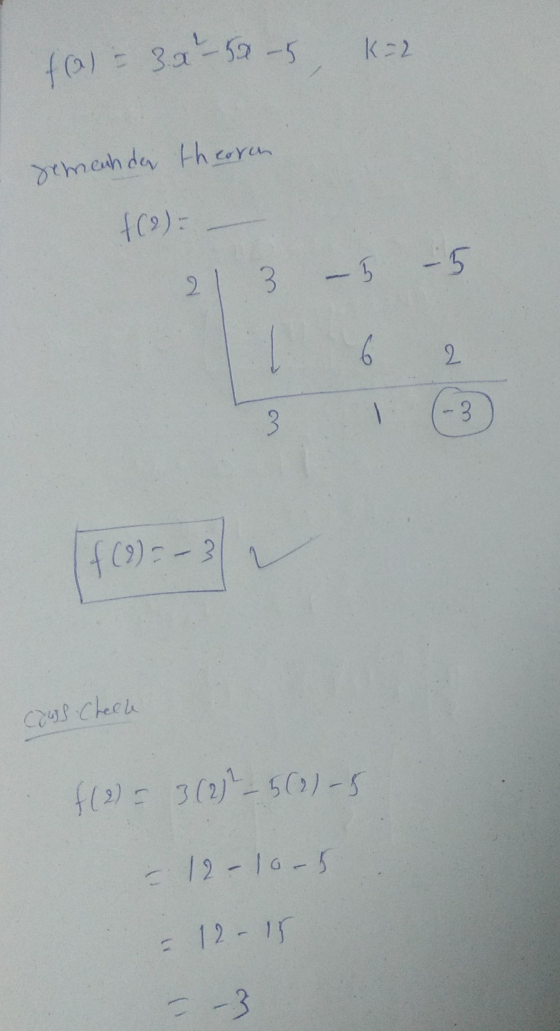 f(x) = 3x² - 5x - 5, K=2
remainder theorem
f(2) = __
2 | 3 - 5 - 5
↓ 6 2
3 1 -3
f(2) = - 3 ✓
cross check
f(2) = 3(2)² - 5(2) - 5
= 12 - 10 - 5
= 12 - 15
= -3